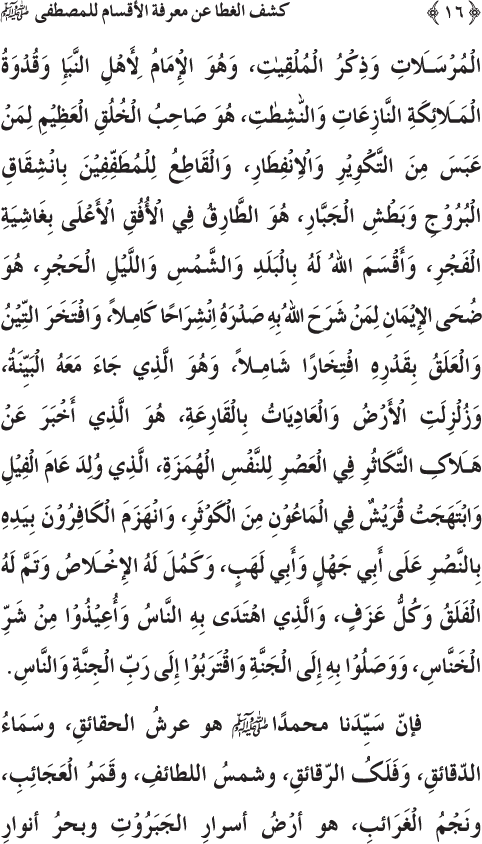 ﴿١٦﴾ كشف الغطا عن معرفة الأقسام للمصطفى ﷺ
الْمُرْسَلَاتِ وَذِكْرُ الْمُلْقِيٰتِ، وَهُوَ الْإِمَامُ لِأَهْلِ النَّبَإِ وَقُدْوَةُ
الْمَلَائِكَةِ النَّازِعَاتِ وَالنّٰشِطٰتِ، هُوَ صَاحِبُ الْخُلُقِ الْعَظِيْمِ لِمَنْ
عَبَسَ مِنَ التَّكْوِيْرِ وَالْاِنْفِطَارِ، وَالْقَاطِعُ لِلْمُطَفِّفِيْنَ بِانْشِقَاقِ
الْبُرُوْجِ وَبَطْشِ الْجَبَّارِ، هُوَ الطَّارِقُ فِي الْأُفُقِ الْأَعْلَى بِغَاشِيَةِ
الْفَجْرِ، وَأَقْسَمَ اللهُ لَهُ بِالْبَلَدِ وَالشَّمْسِ وَاللَّيْلِ الْحَجْرِ، هُوَ
ضُحَى الْإِيْمَانِ لِمَنْ شَرَحَ اللهُ بِهِ صَدْرَهُ اِنْشِرَاحًا كَامِلاً، وَافْتَخَرَ التِّيْنُ
وَالْعَلَقُ بِقَدْرِهِ افْتِخَارًا شَامِلاً، وَهُوَ الَّذِي جَاءَ مَعَهُ الْبَيِّنَةُ،
وَزُلْزِلَتِ الْأَرْضُ وَالْعَادِيَاتُ بِالْقَارِعَةِ، هُوَ الَّذِي أَخْبَرَ عَنْ
هَلَاكِ التَّكَاثُرِ فِي الْعَصْرِ لِلنَّفْسِ الْهُمَزَةِ، الَّذِي وُلِدَ عَامَ الْفِيْلِ
وَابْتَهَجَتْ قُرَيْشٌ فِي الْمَاعُوْنِ مِنَ الْكَوْثَرِ، وَانْهَزَمَ الْكَافِرُوْنَ بِيَدِهِ
بِالنَّصْرِ عَلَى أَبِي جَهْلٍ وَأَبِي لَهَبٍ، وَكَمُلَ لَهُ الْإِخْلَاصُ وَتَمَّ لَهُ
الْفَلَقُ وَكُلُّ عَزَفٍ، وَالَّذِي اهْتَدَى بِهِ النَّاسُ وَأُعِيْذُوْا مِنْ شَرِّ
الْخَنَّاسِ، وَوَصَلُوْا بِهِ إِلَى الْجَنَّةِ وَاقْتَرَبُوْا إِلَى رَبِّ الْجِنَّةِ وَالنَّاسِ.
فإنّ سَيِّدَنا محمدًا ﷺ هو عرشُ الحقائقِ، وسَمَاءُ
الدّقائقِ، وَفَلَكُ الرّقائقِ، وشمسُ اللطائفِ، وقَمَرُ الْعَجَائِبِ،
ونَجْمُ الْغَرَائبِ، هو أرْضُ أسرارِ الجَبَرُوْتِ وبحرُ أنوارِ